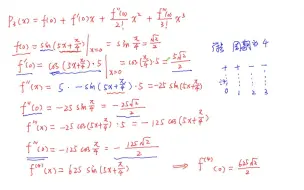 P₃(x) = f(0) + f'(0)x + f''(0)/2! x² + f'''(0)/3! x³
f(0) = sin(5x+π/4)|ₓ₌₀ = sin π/4 = √2/2
周期为 4
f'(0) = cos(5x+π/4)·5|ₓ₌₀ = cos(π/4)·5 = 5√2/2
+ + − −
f''(x) = 5·−sin(5x+π/4)·5 = −25 sin(5x+π/4)
0 1 2 3
f''(0) = −25 sin π/4 = −25√2/2
f'''(x) = −25 cos(5x+π/4)·5 = −125 cos(5x+π/4)
f'''(0) = −125 cos π/4 = −125√2/2
f⁽⁴⁾(x) = 625 sin(5x+π/4) ⟹ f⁽⁴⁾(0) = 625√2/2